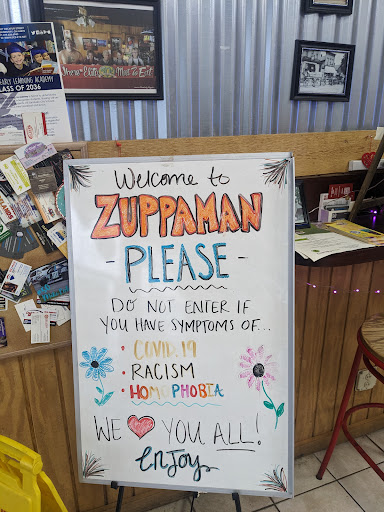 EARLY LEARNING ACADEMY
CLASS OF 2036
Welcome to
ZUPPAMAN
- PLEASE -
DO NOT ENTER IF
YOU HAVE SYMPTOMS OF...
• COVID.19
• RACISM
• HOMOPHOBIA
WE YOU ALL!
Enjoy